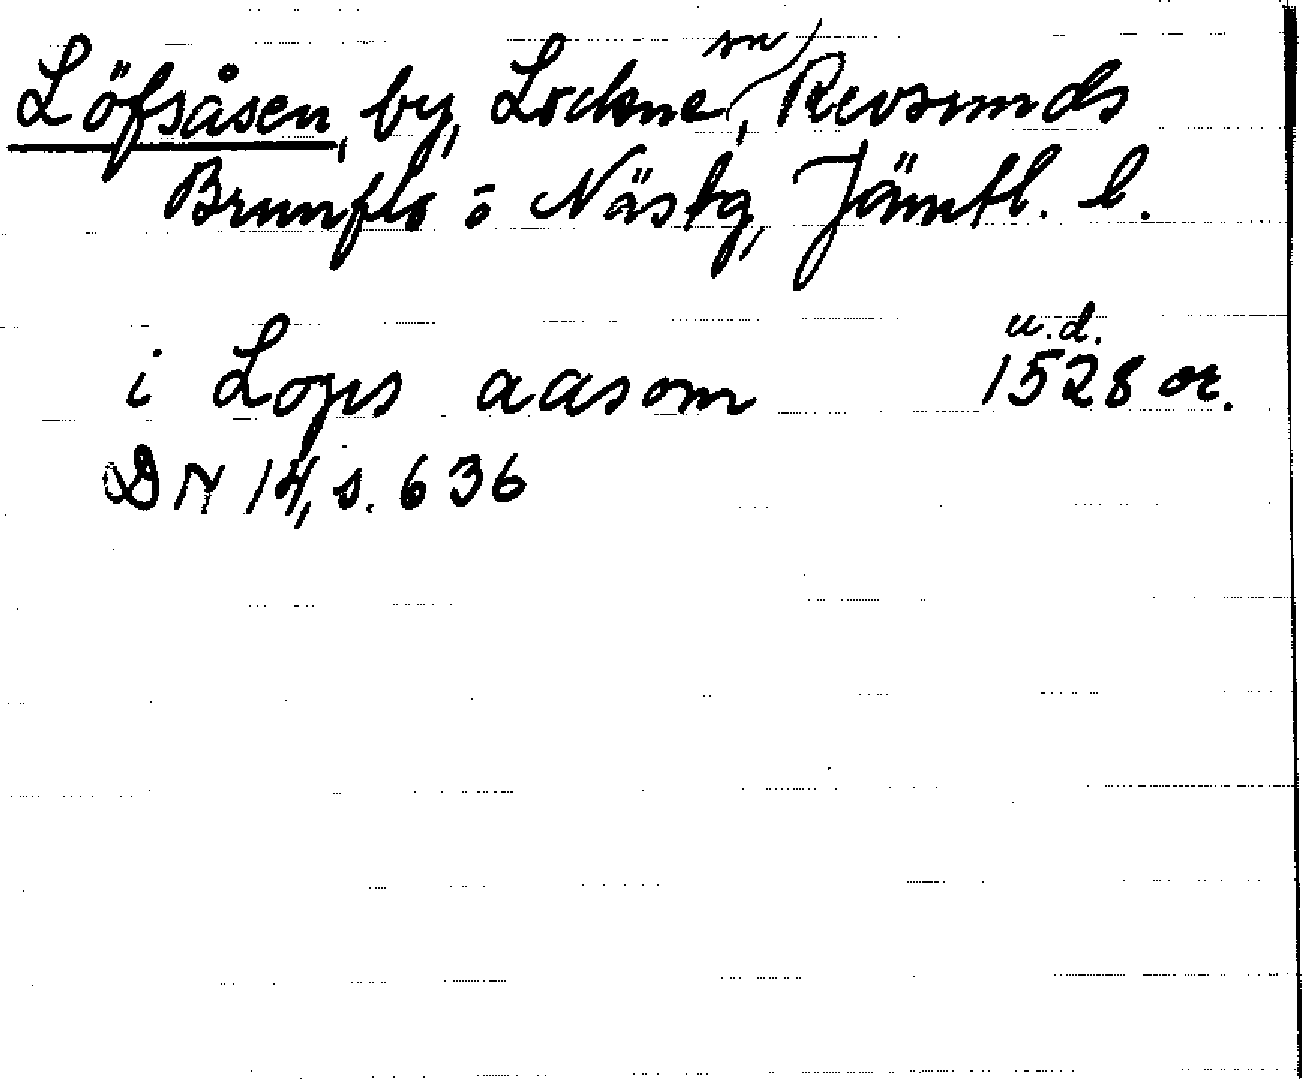 Löfsåsen, by, Lockne sn, Revsunds
Brunflo o Näs tg, Jämtl. l.
u.d.
i Logss aasom 1528 or.
DN 14, s. 636